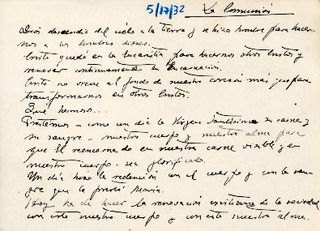 5/17/32
La Comunión
Dios descendió del cielo a la tierra y se hizo hombre para hacer-
nos a los hombres dioses.
Cristo quedó en la Eucaristía para hacernos otros Cristos y
renovar continuamente la Encarnación.
Cristo no viene al fondo de nuestro corazón más que para
transformarnos en otros Cristos.
Qué honroso...
Prestemos - como un día la Virgen Santísima su carne y
su sangre - nuestro cuerpo y nuestra alma para
que Él reencarnado en nuestra carne visible y en
nuestro cuerpo sea glorificado.
Un día hizo la redención con el cuerpo y con la san-
gre que le prestó María.
Hoy ha de hacer la renovación cristiana de la sociedad
con este nuestro cuerpo y con esta nuestra alma.